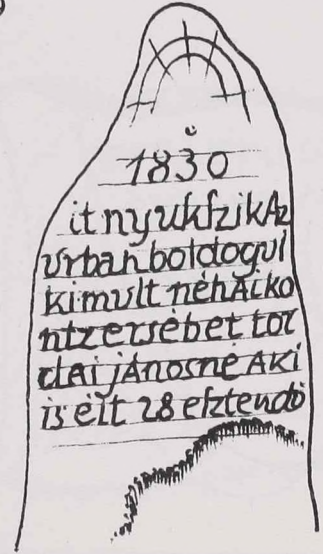 1830
it nyukſzik Az
Urban boldogul
ki mult néhAi ko
ntz ersébet tor
dai jÁnosné AKi
is élt 28 eſztendö